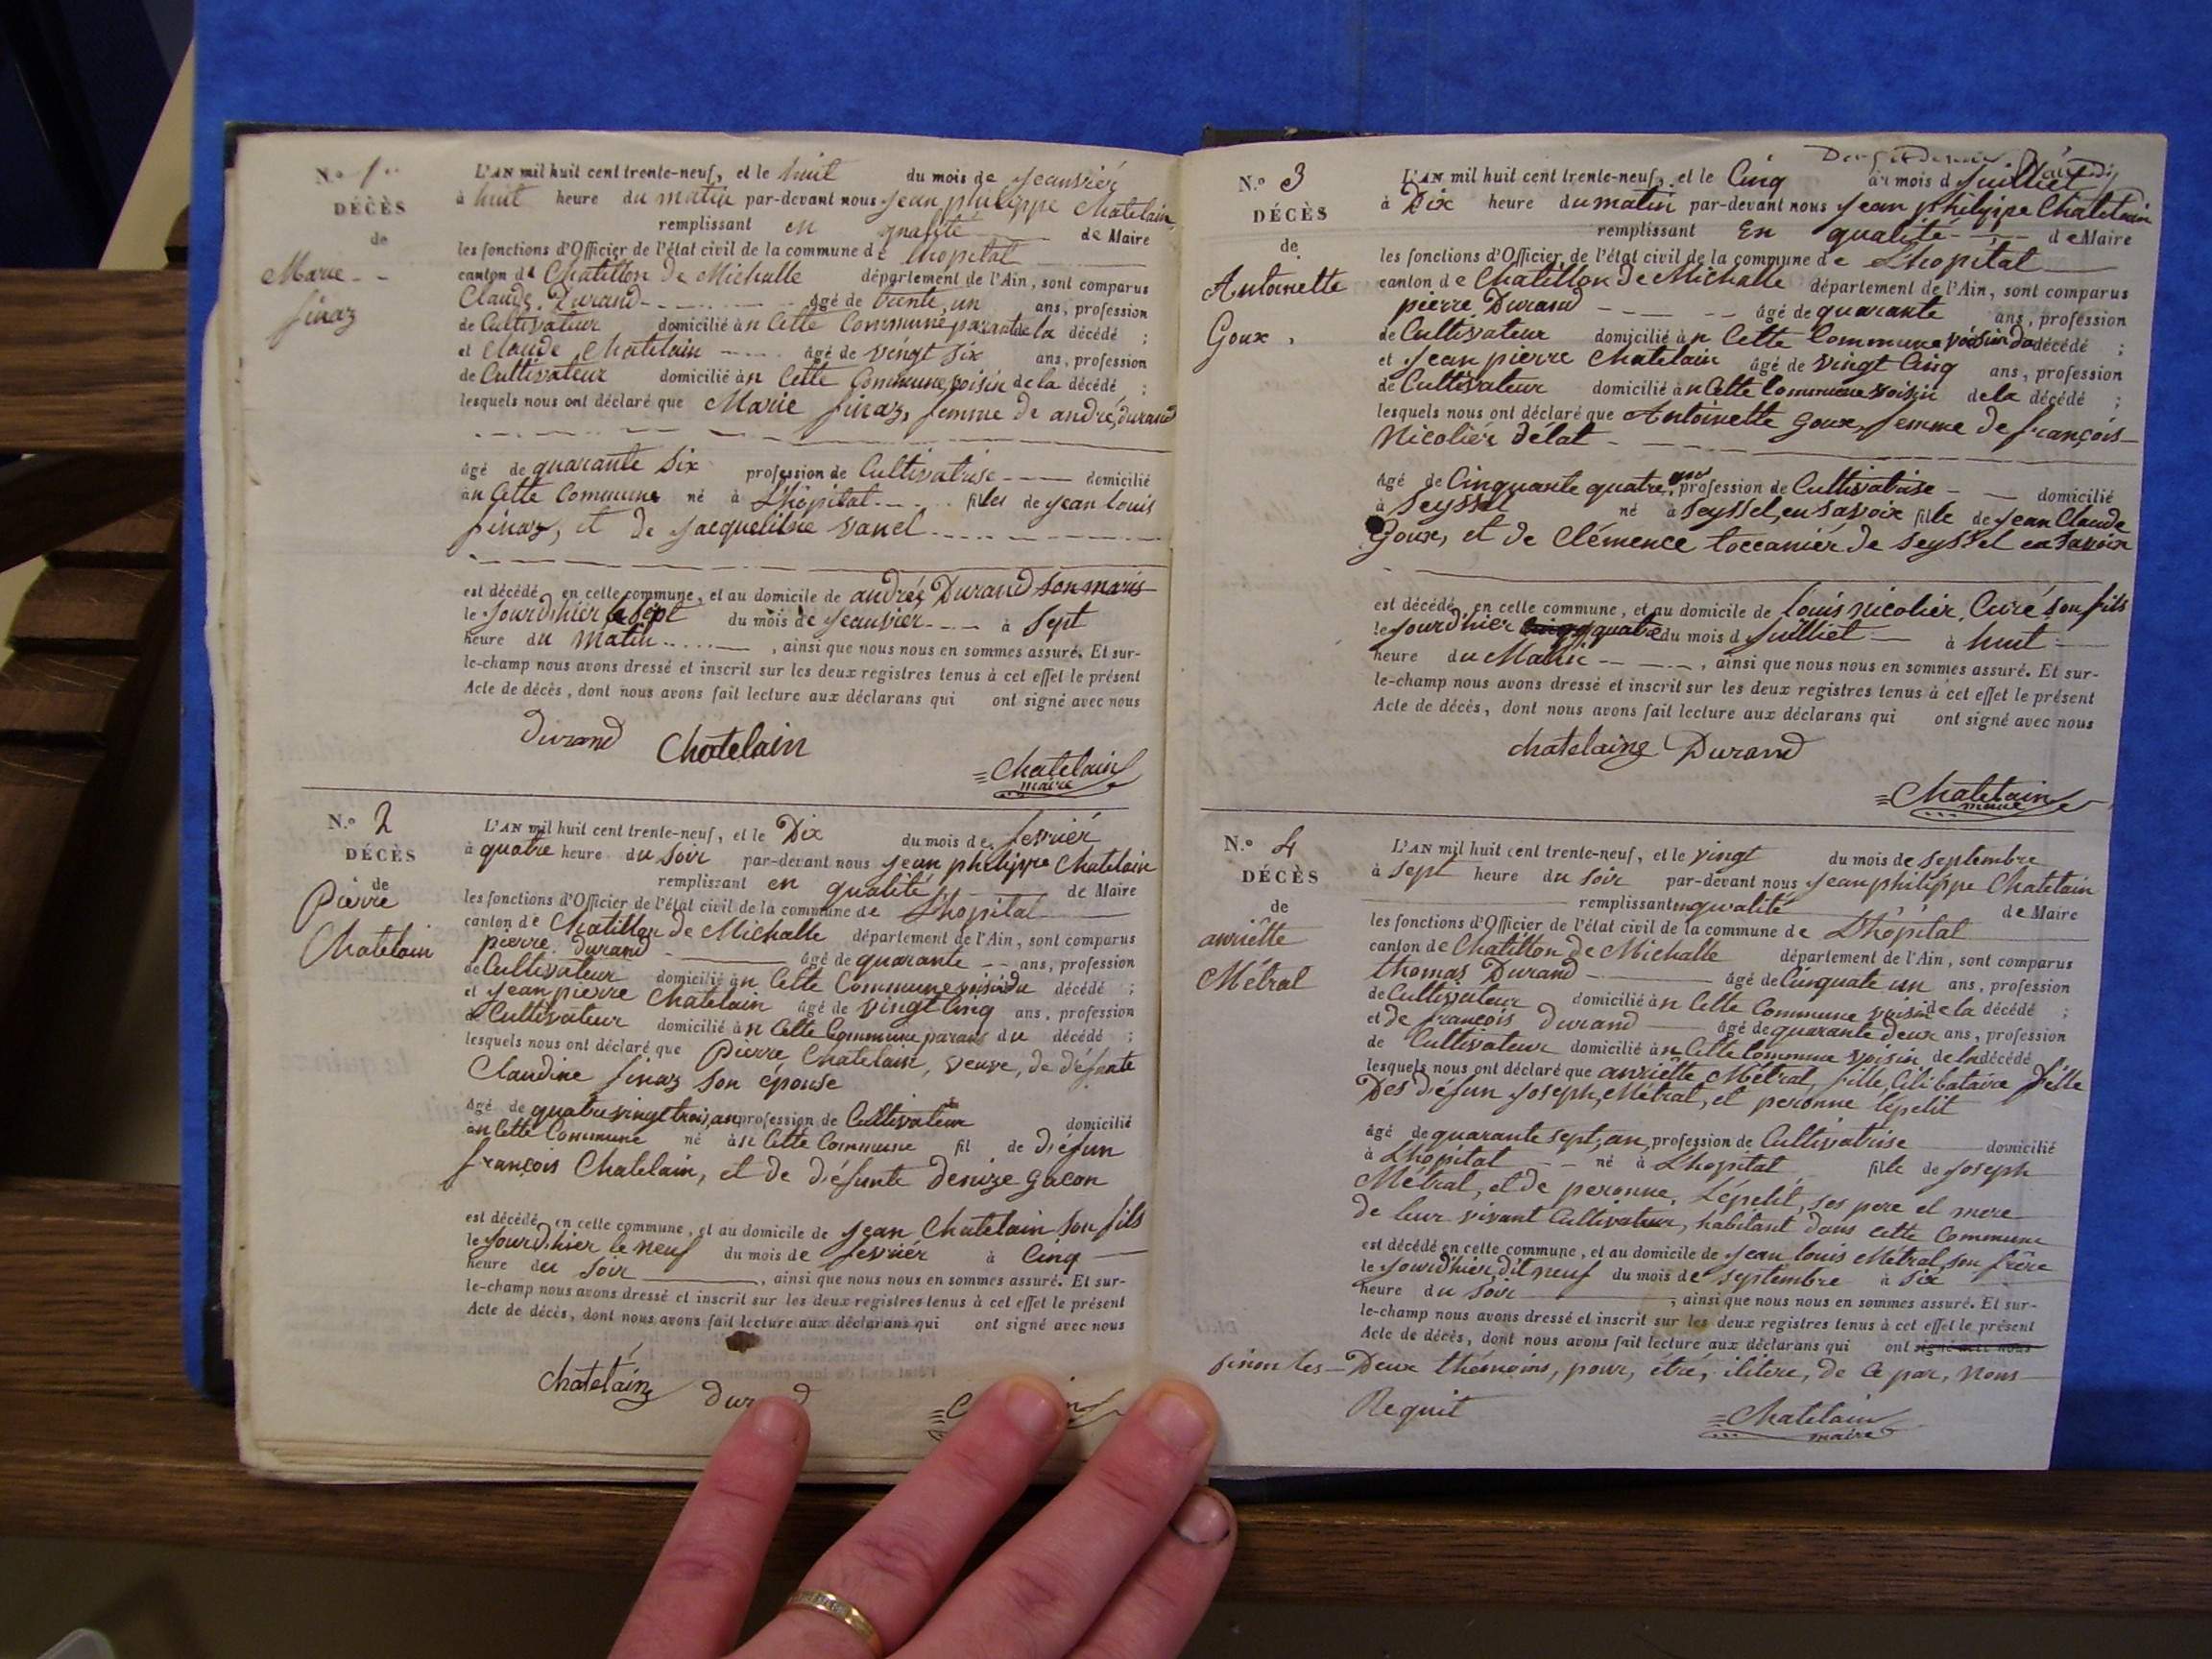 N.o 1er
DÉCÈS
de
Marie
finaz
L'AN mil huit cent trente-neuf, et le huit du mois de jeanvier
à huit heure du matin par-devant nous jean philippe Chatelain
remplissant en qualité de Maire
les fonctions d'Officier de l'état civil de la commune de Lhopital
canton de Chatillon de Michalle département de l'Ain, sont comparus
Claude Durand âgé de trente un ans, profession
de Cultivateur domicilié àn Cette Commune parant de la décédé ;
et Claude Chatelain âgé de vingt six ans, profession
de Cultivateur domicilié àn Cette Commune, voisin de la décédé ;
lesquels nous ont déclaré que Marie finaz, femme de andré, durand
âgé de quarante six profession de Cultivatrise domicilié
àn Cette Commune né à Lhopital filles de jean louis
finaz, et de jacqueline vanel
est décédé en cette commune, et au domicile de andréz Durand son maris
le jourdhier le sept du mois de jeanvier à sept
heure du matin , ainsi que nous nous en sommes assuré. Et sur-
le-champ nous avons dressé et inscrit sur les deux registres tenus à cet effet le présent
Acte de décès, dont nous avons fait lecture aux déclarans qui ont signé avec nous
Durand Chatelain
Chatelain
maire
N.o 2
DÉCÈS
de
Pierre
Chatelain
L'AN mil huit cent trente-neuf, et le Dix du mois de fevriér
à quatre heure du soir par-devant nous jean philippe Chatelain
remplissant en qualité de Maire
les fonctions d'Officier de l'état civil de la commune de Lhopital
canton de Chatillon de Michalle département de l'Ain, sont comparus
pierre durand âgé de quarante ans, profession
de Cultivateur domicilié àn Cette Commune voisin du décédé ;
et jean pierre Chatelain âgé de vingt Cinq ans, profession
de Cultivateur domicilié àn Cette Commune parans du décédé ;
lesquels nous ont déclaré que Pierre Chatelain, veuve, de défunte
Claudine finaz son épouse
âgé de quatre vingt trois, an profession de Cultivateur domicilié
àn Cette Commune né àn Cette Commune fil de défun
françois Chatelain, et de défunte Denize gacon
est décédé en cette commune, et au domicile de jean Chatelain son fils
le jourdhier le neuf du mois de fevriér à Cinq
heure du soir , ainsi que nous nous en sommes assuré. Et sur-
le-champ nous avons dressé et inscrit sur les deux registres tenus à cet effet le présent
Acte de décès, dont nous avons fait lecture aux déclarans qui ont signé avec nous
Chatelain
N.o 3
DÉCÈS
de
Antoinette
Goux
L'AN mil huit cent trente-neuf, et le Cinq du mois d juilliet
à Dix heure du matin par-devant nous jean philippe Chatelain
remplissant En qualité de Maire
les fonctions d'Officier de l'état civil de la commune de Lhopital
canton de Chatillon de Michalle département de l'Ain, sont comparus
pierre Durand âgé de quarante ans, profession
de Cultivateur domicilié àn Cette Commune voisin da décédé ;
et jean pierre Chatelain âgé de vingt Cinq ans, profession
de Cultivateur domicilié àn Cette Commune voisin de la décédé ;
lesquels nous ont déclaré que Antoinette goux, femme de françois
Nicoliér délat
âgé de Cinquante quatre, ans profession de Cultivatrise domicilié
à Seyssel né à Seyssel, en Savoix fille de jean Claude
Goux, et de Clémence toccaniér de Seyssel en Savoix
est décédé en cette commune, et au domicile de louis nicolier, Curé son fils
le jourdhier quatre du mois d juilliet à huit
heure du Matin , ainsi que nous nous en sommes assuré. Et sur-
le-champ nous avons dressé et inscrit sur les deux registres tenus à cet effet le présent
Acte de décès, dont nous avons fait lecture aux déclarans qui ont signé avec nous
Chatelaing Durand
Chatelain
maire
N.o 4
DÉCÈS
de
anriette
Métral
L'AN mil huit cent trente-neuf, et le vingt du mois de septembre
à sept heure du soir par-devant nous jean philippe Chatelain
remplissant nqualité de Maire
les fonctions d'Officier de l'état civil de la commune de Lhopital
canton de Chatillon de Michalle département de l'Ain, sont comparus
thomas Durand âgé de Cinquate un ans, profession
de Cultivateur domicilié àn Cette Commune voisin de la décédé ;
et de françois Durand âgé de quarante deux ans, profession
de Cultivateur domicilié àn Cette Commune voisin de la décédé
lesquels nous ont déclaré que anriette Métral, fille, Célibataire fille
Des défun joseph, Métral, et peronne lépetit
âgé de quarante sept, an, profession de Cultivatrise domicilié
à Lhopital né à Lhopital fille de joseph
Métral, et de peronne, Lépetit, ses pere et mere
de leur vivant Cultivateur, habitant dans cette Commune
est décédé en cette commune, et au domicile de jean louis Métral, son frère
le jourdhier, dit neuf du mois de septembre à six
heure du soir , ainsi que nous nous en sommes assuré. Et sur-
le-champ nous avons dressé et inscrit sur les deux registres tenus à cet effet le présent
Acte de décès, dont nous avons fait lecture aux déclarans qui ont signé avec nous
sinon les Deux thémoins, pour, étré, ilitére, de Ce par, Nous
Requit
Chatelain
maire